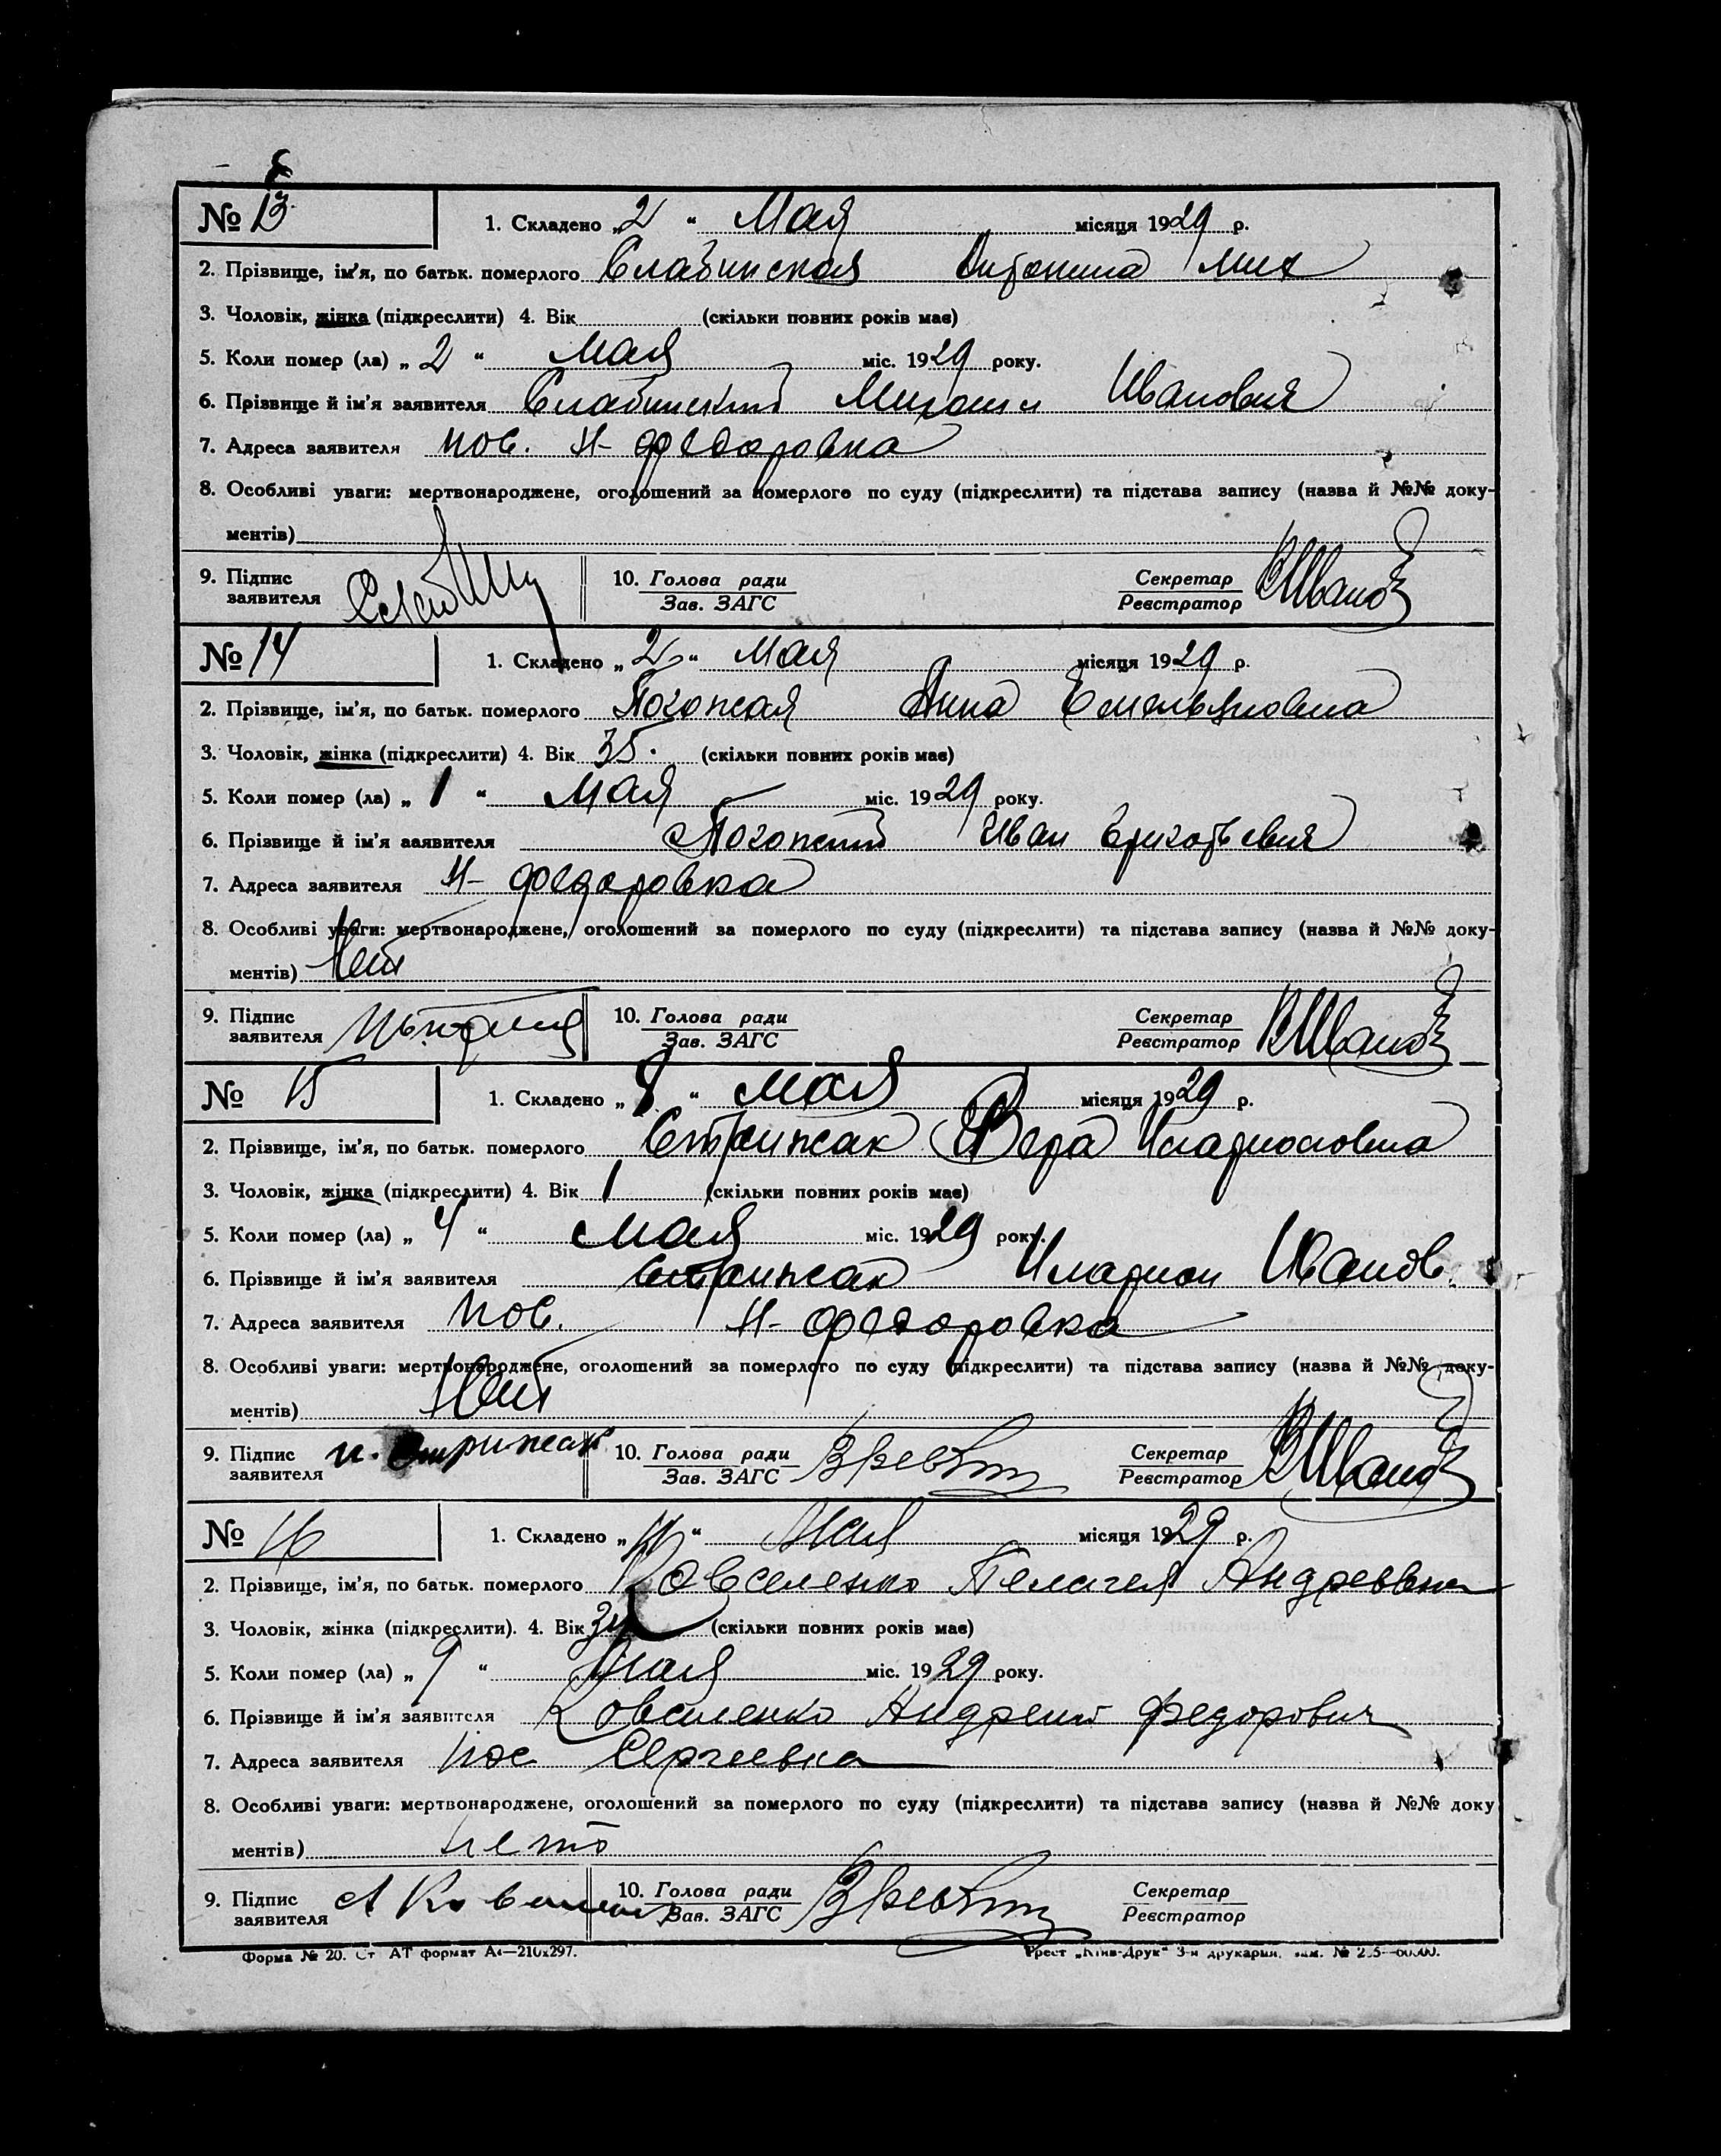 № 13
1. Складено „2“ Мая місяця 1929 р.
2. Прізвище, ім'я, по батьк. померлого Слабинская Антонина Мих
3. Чоловік, жінка (підкреслити) 4. Вік (скільки повних років має)
5. Коли помер (ла) „2“ Мая міс. 1929 року.
6. Прізвище й ім'я заявителя Слабинский Михаил Иванович
7. Адреса заявителя пос. Н-Федоровка
8. Особливі уваги: мертвонароджене, оголошений за померлого по суду (підкреслити) та підстава запису (назва й №№ доку-
ментів)
9. Підпис заявителя 10. Голова ради Зав. ЗАГС Секретар Реєстратор
№ 14
1. Складено „2“ Мая місяця 1929 р.
2. Прізвище, ім'я, по батьк. померлого Похожая Анна Емельяновна
3. Чоловік, жінка (підкреслити) 4. Вік 35. (скільки повних років має)
5. Коли помер (ла) „1“ Мая міс. 1929 року.
6. Прізвище й ім'я заявителя Похожий Иван
7. Адреса заявителя Н-Федоровка
8. Особливі уваги: мертвонароджене, оголошений за померлого по суду (підкреслити) та підстава запису (назва й №№ доку-
ментів) Нет
9. Підпис заявителя 10. Голова ради Зав. ЗАГС Секретар Реєстратор
№ 15
1. Складено „8“ Мая місяця 1929 р.
2. Прізвище, ім'я, по батьк. померлого Стрижак Вера Иларионовна
3. Чоловік, жінка (підкреслити) 4. Вік 1 (скільки повних років має)
5. Коли помер (ла) „4“ Мая міс. 1929 року.
6. Прізвище й ім'я заявителя Стрижак Иларион Иванов.
7. Адреса заявителя пос. Н-Федоровка
8. Особливі уваги: мертвонароджене, оголошений за померлого по суду (підкреслити) та підстава запису (назва й №№ доку-
ментів) Нет
9. Підпис заявителя и. Стрижак 10. Голова ради Зав. ЗАГС Секретар Реєстратор
№ 16
1. Складено „ “ Мая місяця 1929 р.
2. Прізвище, ім'я, по батьк. померлого Пелагея Андреевна
3. Чоловік, жінка (підкреслити). 4. Вік (скільки повних років має)
5. Коли помер (ла) „9“ Мая міс. 1929 року.
6. Прізвище й ім'я заявителя Андрей Федорович
7. Адреса заявителя пос Сергеевка
8. Особливі уваги: мертвонароджене, оголошений за померлого по суду (підкреслити) та підстава запису (назва й №№ доку
ментів) нет
9. Підпис заявителя 10. Голова ради Зав. ЗАГС Секретар Реєстратор
Форма № 20. Ст АТ формат А4—210x297. Трест „Київ-Друк“ 3-я друкарня, зам. №